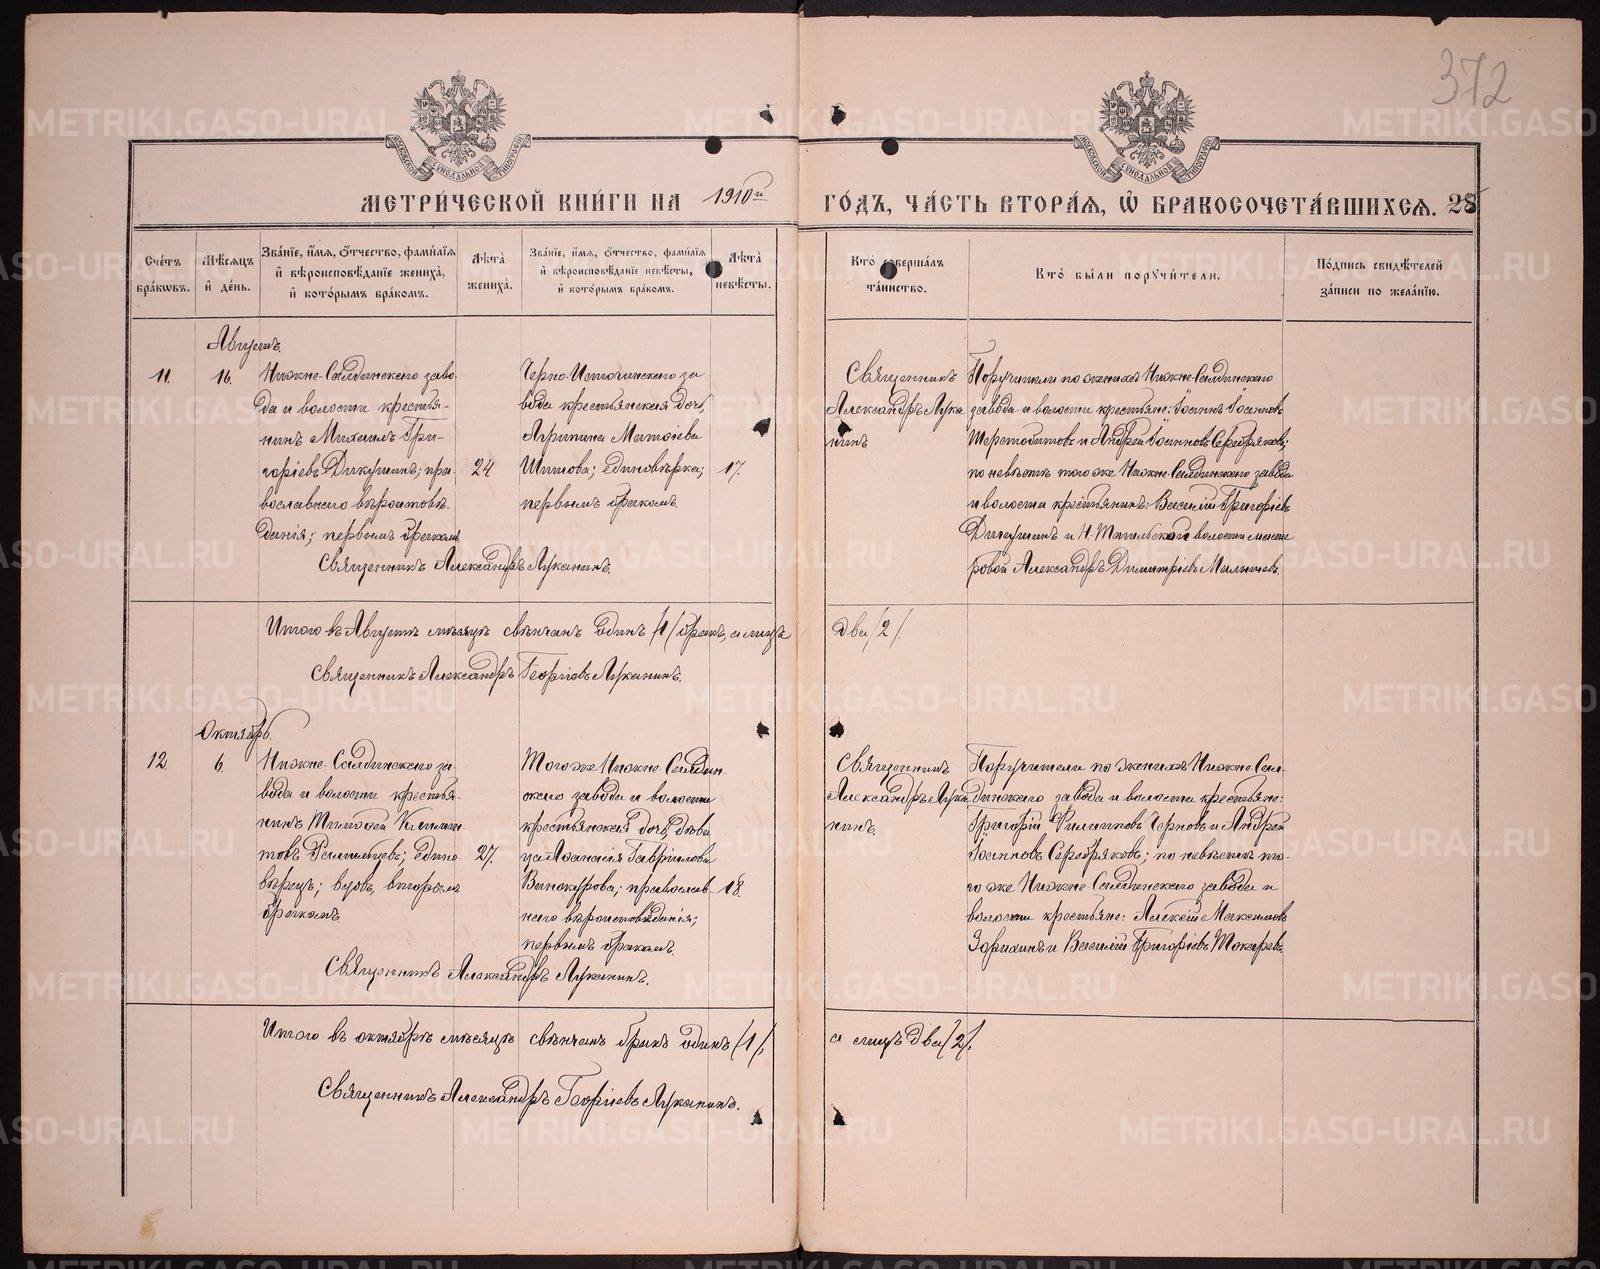 372
МЕТРИЧЕСКОЙ КНИГИ НА 1910й ГОДЪ, ЧАСТЬ ВТОРАЯ, Ѡ БРАКОСОЧЕТАВШИХСЯ. 28
Счетъ браковъ.
Мѣсяцъ и день.
Званіе, имя, отчество, фамилія
и вѣроисповѣданіе жениха,
и которымъ бракомъ.
Лѣта
жениха.
Званіе, имя, отчество, фамилія
и вѣроисповѣданіе невѣсты,
и которымъ бракомъ.
Лѣта
невѣсты.
Кто совершалъ
таинство.
Кто были поручители.
Подпись свидѣтелей
записи по желанію.
Августъ.
11.
16.
Нижне-Салдинскаго заво-
да и волости крестья-
нинъ Михаилъ Гри-
горіевъ Дикушинъ; пра-
вославнаго вѣроисповѣ-
данія; первымъ бракомъ
24.
Черно-Источинскаго за
вода крестьянская дочь,
Агрипина Матѳіева
Шитова; единовѣрка;
первымъ бракомъ.
17.
Священникъ Александръ Луканинъ.
Священникъ
Александръ Лука
нинъ
Поручители по женихѣ Нижне-Салдинскаго
завода и волости крестьяне: Іоаннъ Іоанновъ
и Андрей Іоанновъ Серебряковъ;
по невѣстѣ того же Нижне-Салдинскаго завода
и волости крестьянинъ Василій Григоріевъ
Дикушинъ и Н-Тагильской волости
Александръ Димитріевъ Малышевъ.
Итого въ Августѣ мѣсяцѣ свѣнчанъ одинъ /1/ бракъ, а лицъ
два /2/.
Священникъ Александръ Георгіевъ Луканинъ.
Октябрь.
12.
6.
Нижне-Салдинскаго за-
вода и волости крестья-
нинъ Тимоѳей Климен-
товъ едино-
вѣрецъ; вдовъ, вторымъ
бракомъ
27.
Того же Нижне-Салдин-
скаго завода и волости
крестьянская дочь, дѣви
ца Аѳанасія Гавріилова
Винокурова; православ-
наго вѣроисповѣданія;
первымъ бракомъ.
18.
Священникъ Александръ Луканинъ.
Священникъ
Александръ Лука
нинъ.
Поручители по женихѣ Нижне-Сал-
динскаго завода и волости крестьяне:
Григорій Филипповъ Черновъ и Андрей
Іоанновъ Серебряковъ; по невѣстѣ то-
го же Нижне-Салдинскаго завода и
волости крестьяне: Алексій Максимовъ
Зорихинъ и Василій Григоріевъ Токаревъ.
Итого въ октябрѣ мѣсяцѣ свѣнчанъ бракъ одинъ /1/,
а лицъ два /2/.
Священникъ Александръ Георгіевъ Луканинъ.
METRIKI.GASO-URAL.RU